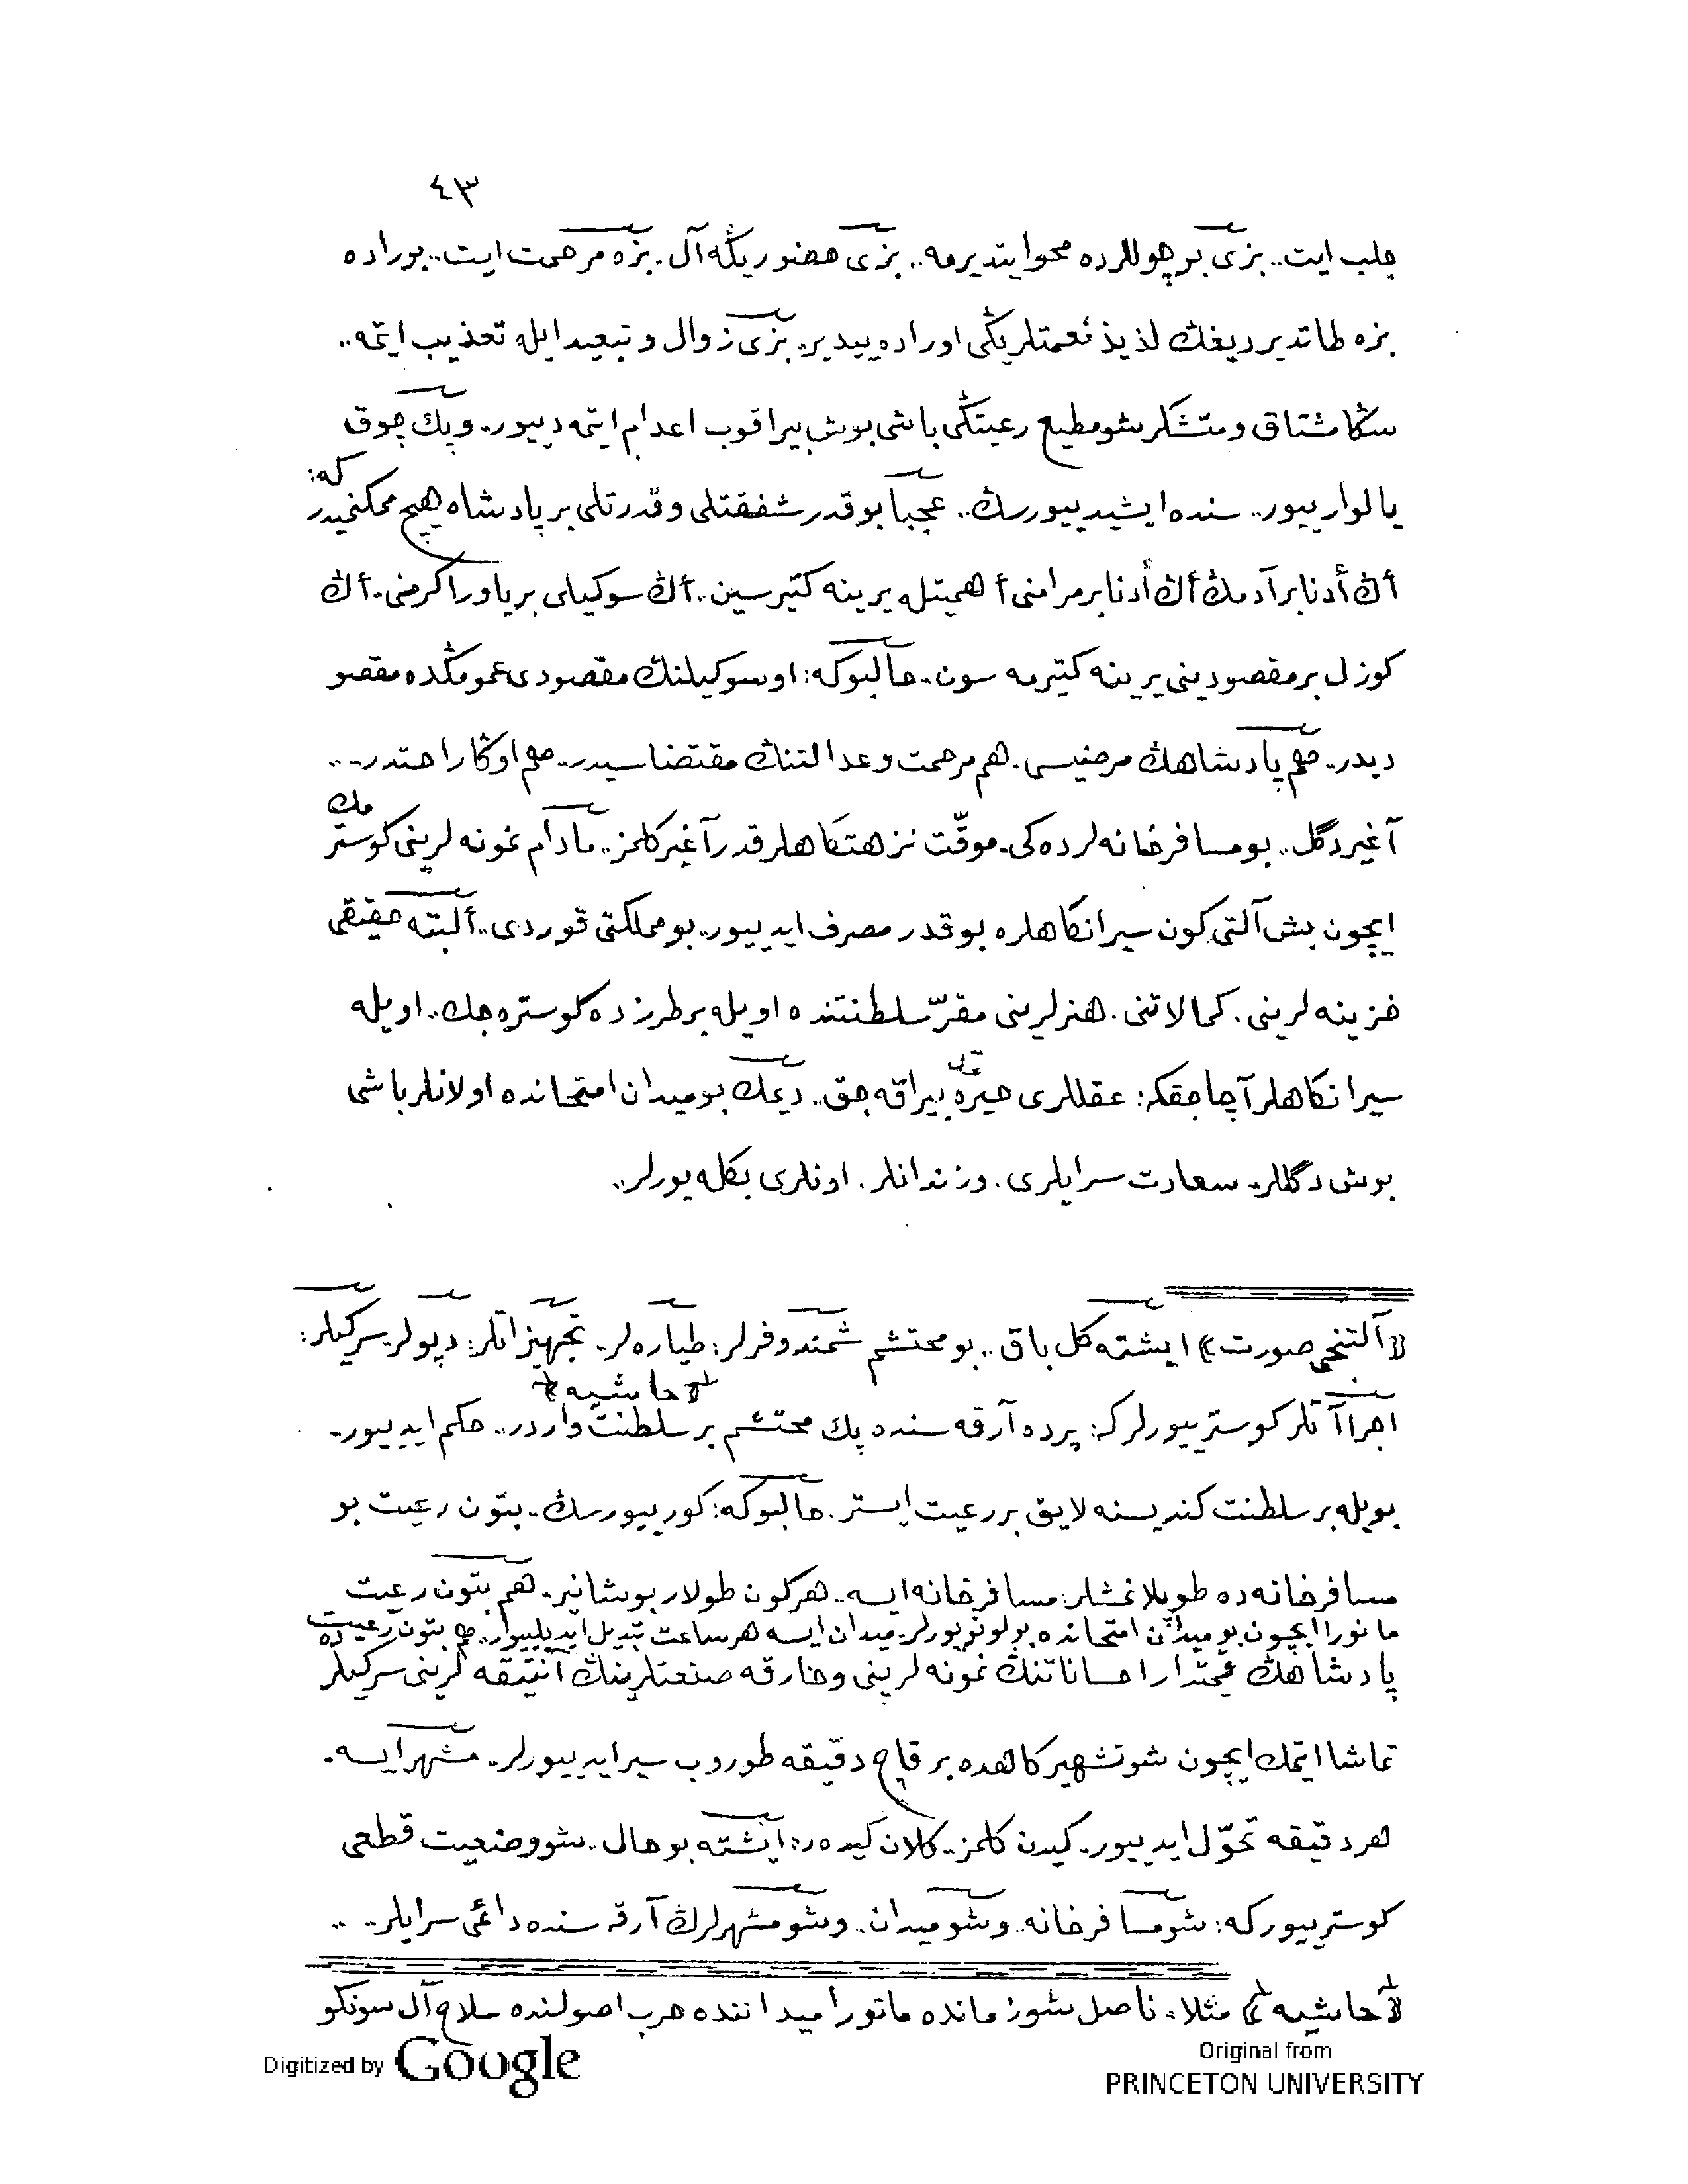 ٤٣
جلب ایت.. بزی بو چوللرده محو ایتدیرمه.. بزی حضوریڭه آل. بزه مرحمت ایت.. بوراده
بزه طاتدیردیغڭ لذیذ نعمتلریڭی اوراده ییدیر. بزی زوال و تبعید ایله تعذیب ایتمه..
سڭا مشتاق و متشکر شو مطیع رعیتڭی باشی بوش بیراقوب اعدام ایتمه دییور. و پك چوق
یالوارییور.. سنده ایشیدییورسڭ.. عجبا بو قدر شفقتلی و قدرتلی بر پادشاه هیچ ممکنمیدر که:
أڭ أدنا بر آدمڭ أڭ أدنا بر مرامنی أهمیتله یرینه کتیرسین.. أڭ سوکیلی بر یاور اکرمنی.. أڭ
کوزل بر مقصودینی یرینه کتیرمه سون. حالبوکه: او سوکیلنڭ مقصودی عمومڭده مقصو
دیدر. هم پادشاهڭ مرضیسی. هم مرحمت و عدالتنڭ مقتضاسیدر. هم اوڭا راحتدر...
آغیر دگل.. بو مسافرخانه لرده کی. موقّت نزهتکاهلر قدر آغیر کلمز.. مادام نمونه لرینی کوسترمك
ایچون بش آلتی کون سیرانکاهلره بو قدر مصرف ایدییور. بو مملکتی قوردی.. ألبته حقیقی
خزینه لرینی. کمالاتنی. هنرلرینی مقرّ سلطنتنده اویله بر طرزده کوستره جك.. اویله
سیرانکاهلر آچاجقکه: عقللری حیرتده بیراقه جق.. دیمك بو میدان امتحانده اولانلر باشی
بوش دگللر. سعادت سرایلری. و زندانلر. اونلری بکله یورلر..
﴿آلتنجی صورت﴾ ایشته کل باق.. بو محتشم شمندوفرلر: طیاره لر. تجهیزاتلر: دپولر. سرکیلر:
اجراآتلر کوسترییورلرکه: پرده آرقه سنده پك محتشم بر سلطنت ﴿حاشیه﴾ واردر.. حکم ایدییور.
بویله بر سلطنت کندیسنه لایق بر رعیت ایستر. حالبوکه: کورییورسڭ. بتون رعیت بو
مسافرخانه ده طوپلانمشلر: مسافرخانه ایسه.. هرکون طولار بوشانیر. هم بتون رعیت
مانورا ایچون بو میدان امتحانده بولونویورلر. میدان ایسه هر ساعت تبدیل ایدیلییور. هم بتون رعیت
پادشاهڭ قیمتدار احساناتنڭ نمونه لرینی و خارقه صنعتلرینڭ آنتیقه لرینی سرکیلرده
تماشا ایتمك ایچون شو تشهیرکاهده بر قاچ دقیقه طوروب سیر ایدییورلر. مشهر ایسه.
هر دقیقه تحوّل ایدییور. کیدن کلمز. کلان کیده ر: ایشته بو حال. شو وضعیت قطعی
کوسترییورکه: شو مسافرخانه. و شو میدان. و شو مشهرلرڭ آرقه سنده دائمی سرایلر...
﴿حاشیه﴾ مثلا. ناصل شو زمانده مانورا میداننده حرب اصولنده سلاح آل سونکو
Digitized by Google
Original from
PRINCETON UNIVERSITY